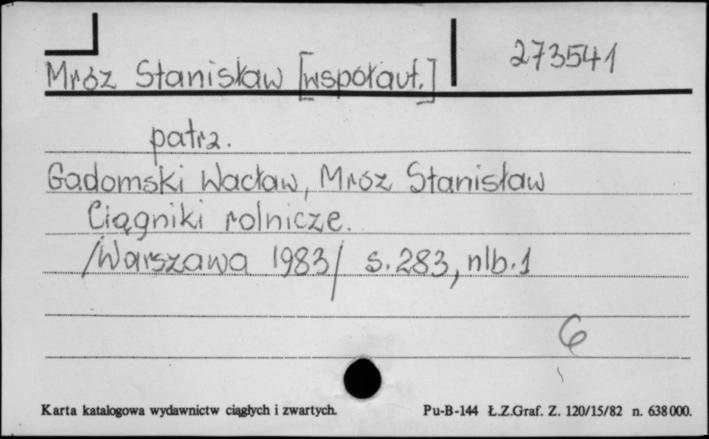 Mróz Stanisław [współaut.] 273541
patrz.
Gadomski Wacław, Mróz Stanisław
Ciągniki rolnicze.
/Warszawa 1983/ s. 283, nlb. 1
6
Karta katalogowa wydawnictw ciągłych i zwartych. Pu-B-144 Ł.Z.Graf. Z. 120/15/82 n. 638 000.